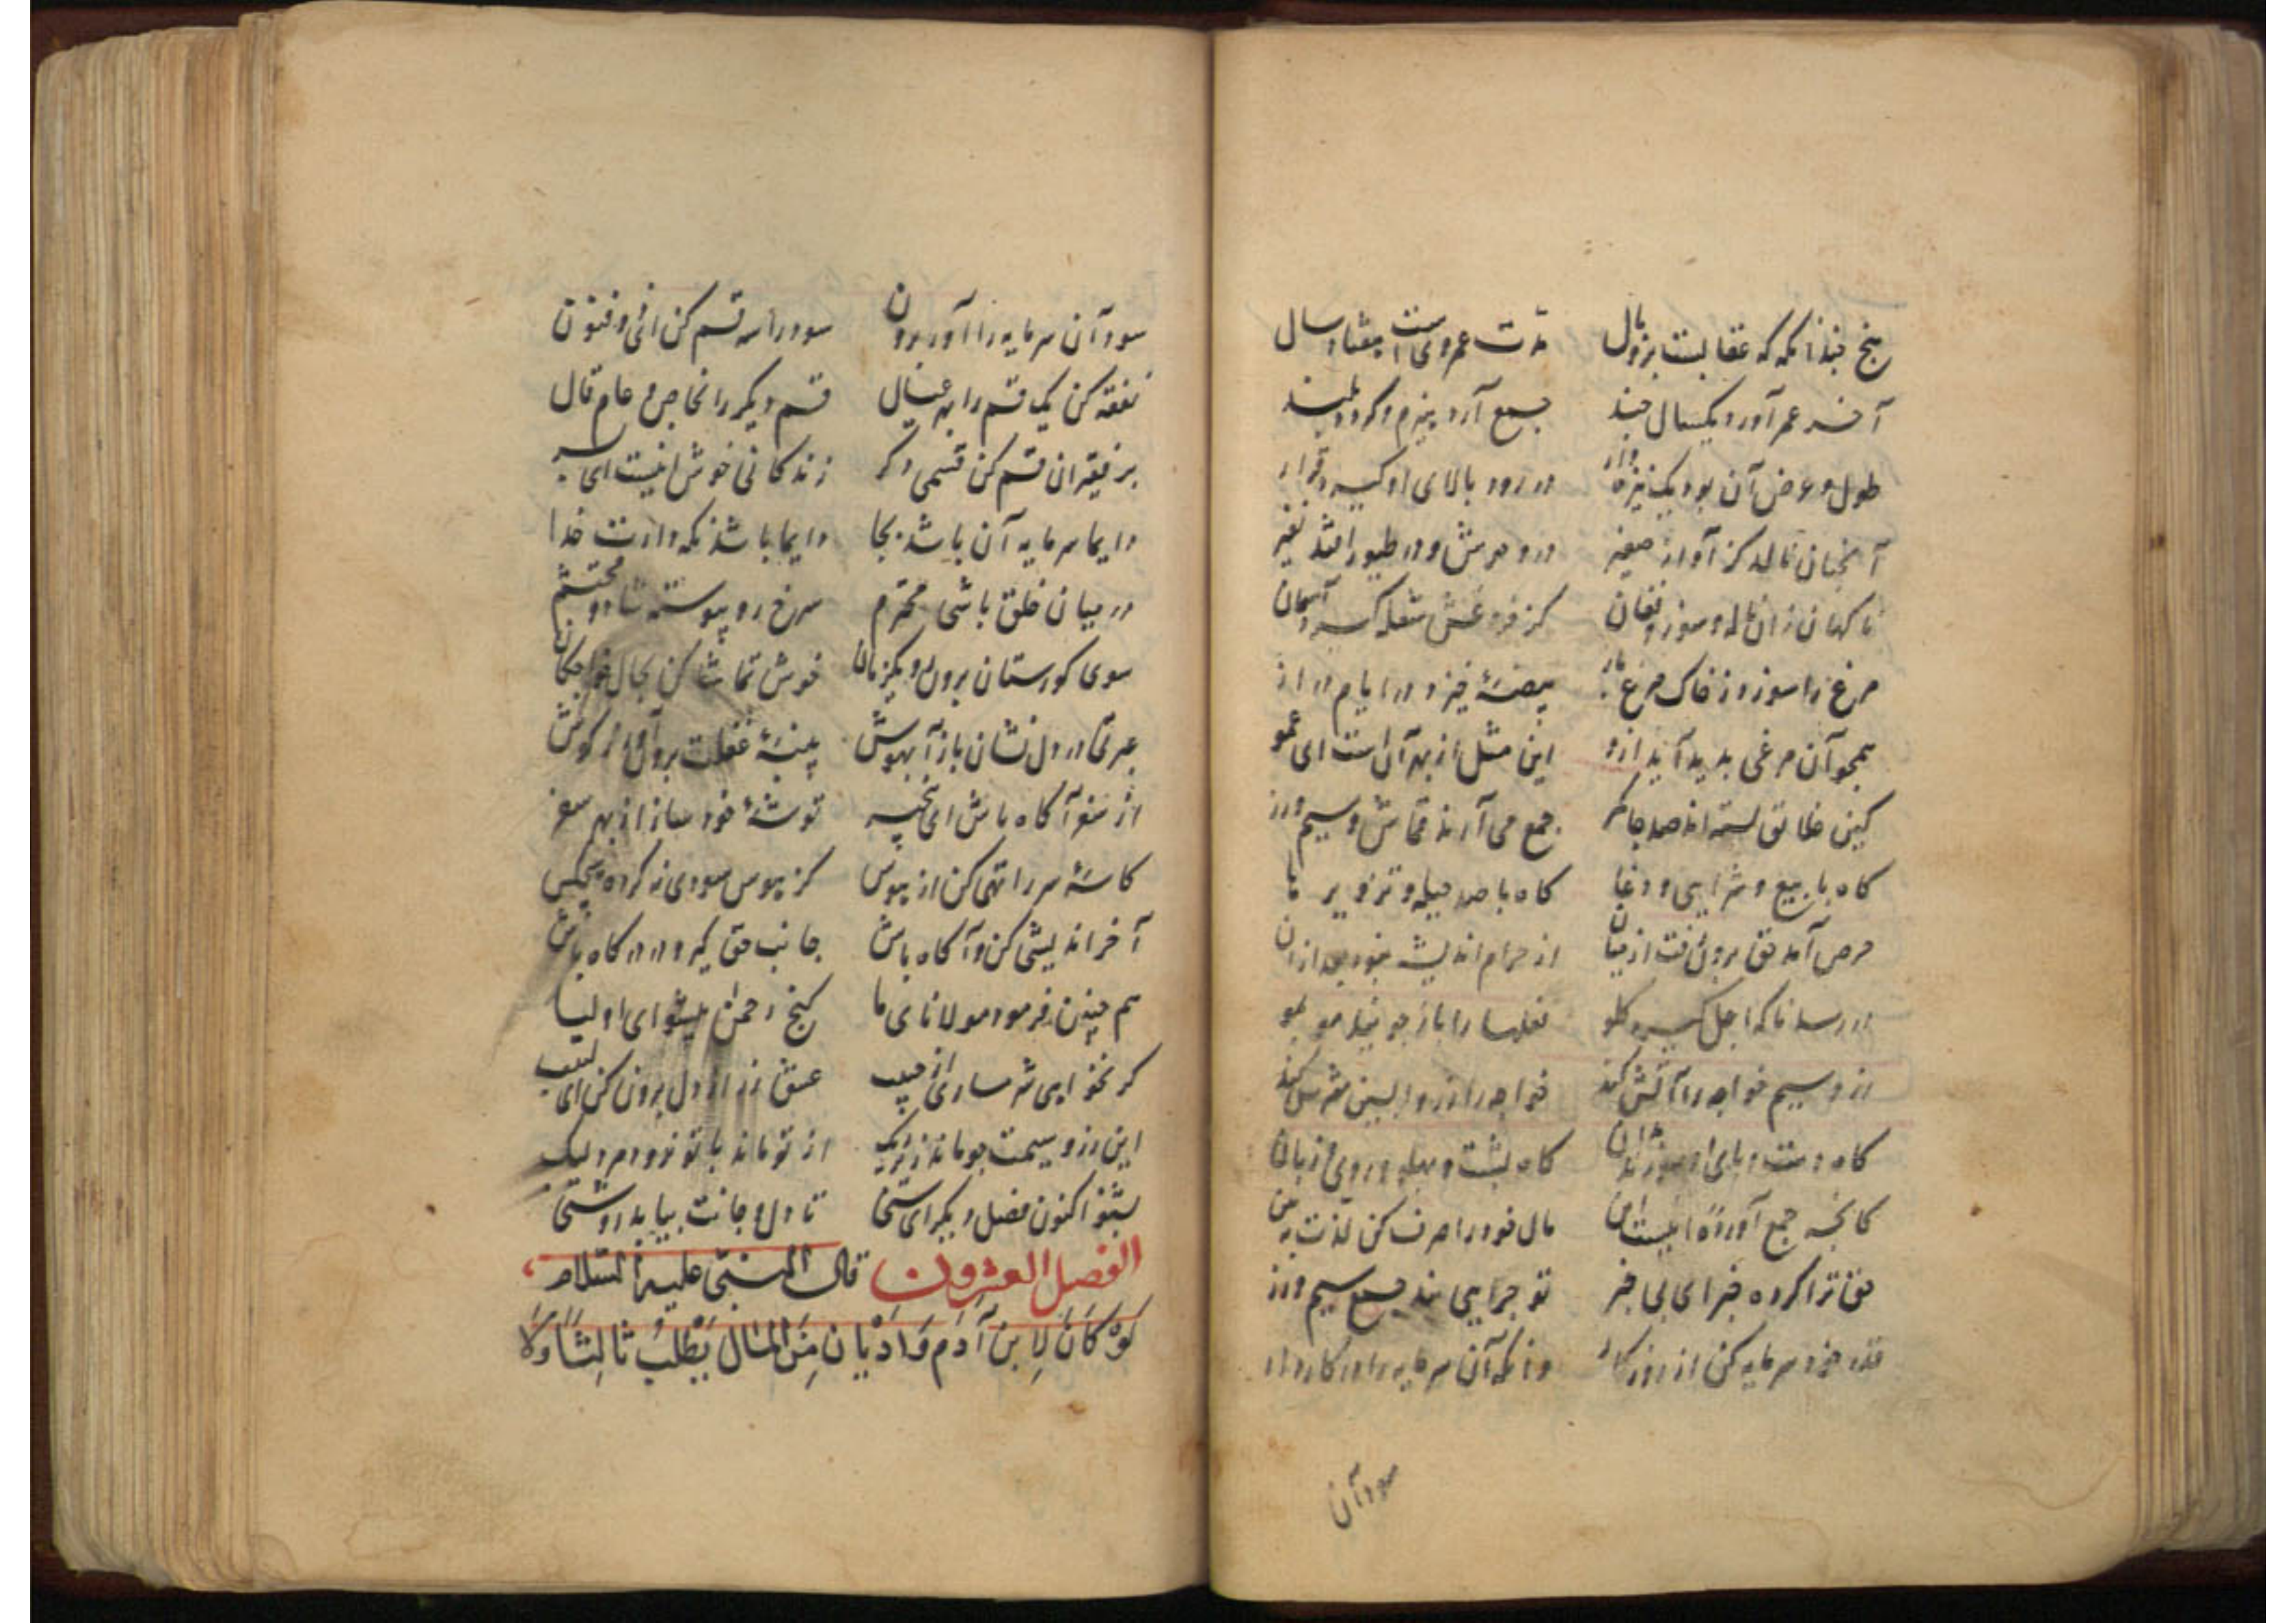 رنج بنداز آنکه که عقابست بزوال مدت عمر وی است هفتاد سال
آخر عمر آورد یکسال چند جمع آرد هیزم و گردد بلند
طول و عرض آن بود یک نیزه وار در رود بالای او گیرد قرار
آنچنان نالد کز آواز صفیر در وحوش و در طیور افتد نفیر
ناکهان زان ناله و سوز و فغان کز فروغش شعله گیرد آسمان
مرغ را سوزد ز خاک مرغ باز بیضهٔ خیزد در ایام دراز
همچو آن مرغی بدید آید ازو این مثل از بهر آن است ای عمو
کین خلایق بسته اند صد جا کمر جمع می آرند قماش و سیم و زر
کاه با بیع و شرایی و دغا کاه با صد حیله و تزویر ما
حرص آمد حق برون رفت از میان از حرام اندیشه نبود بعد ازان
در رسد ناکه اجل گیرد گلو فعلها را باز جویند مو بمو
زر و سیم خواجه را آتش کنند خواجه را زر وا پسین مفرش کنند
کاه دست و پای او سوزند ازان کاه پشت و پهلو و روی و زبان
کانچه جمع آوردهٔ اینست این مال خود را صرف کن لذت ببین
حق ترا کرده خبر ای بی خبر تو چرایی بند جمع سیم و زر
قدر خود سرمایه کن از روزکار وانکه آن سرمایه را در کار دار
سود آن
سود آن سرمایه را آور برون سود را سه قسم کن ای ذو فنون
نفقه کن یک قسم را بر عیال قسم دیکر را بخاص و عام قال
بر فقیران قسم کن قسمی دکر زندکانی خوش اینست ای پسر
دایما سرمایه آن باشد بجا دایما باشد نکه دارت خدا
در میان خلق باشی محترم سرخ رو پیوسته شاد و محتشم
سوی کورستان برون رو یکزمان خوش تماشا کن بحال خواجکان
عبرتی در دل نشان باز آ بهوش پنبهٔ غفلت برون آور ز کوش
از سفر آکاه باش ای بیخبر توشهٔ خود ساز از بهر سفر
کاسهٔ سر را تهی کن از هوس کز هوس سودی نه کرده هیچکس
آخر اندیشی کن و آکاه باش جانب حق کیر و در درکاه باش
هم چنین فرمود مولانای ما کنج رحمن پیشوای اولیا
کر نخواهی شرمساری از حبیب عشق زر از دل برون کن ای لبیب
این زر و سیمت چو ماند ز تو نیک از تو ماند با تو نرود مرد لیک
بشنو اکنون فصل دیکر ای سنی تا دل و جانت بیابد روشنی
الفصل العشرون قال النبی علیه السلام
لَوْ کَانَ لِابنِ آدَم وَادْیَان مِنَ المَال یَطْلُبُ ثَالِثًا وَلَا